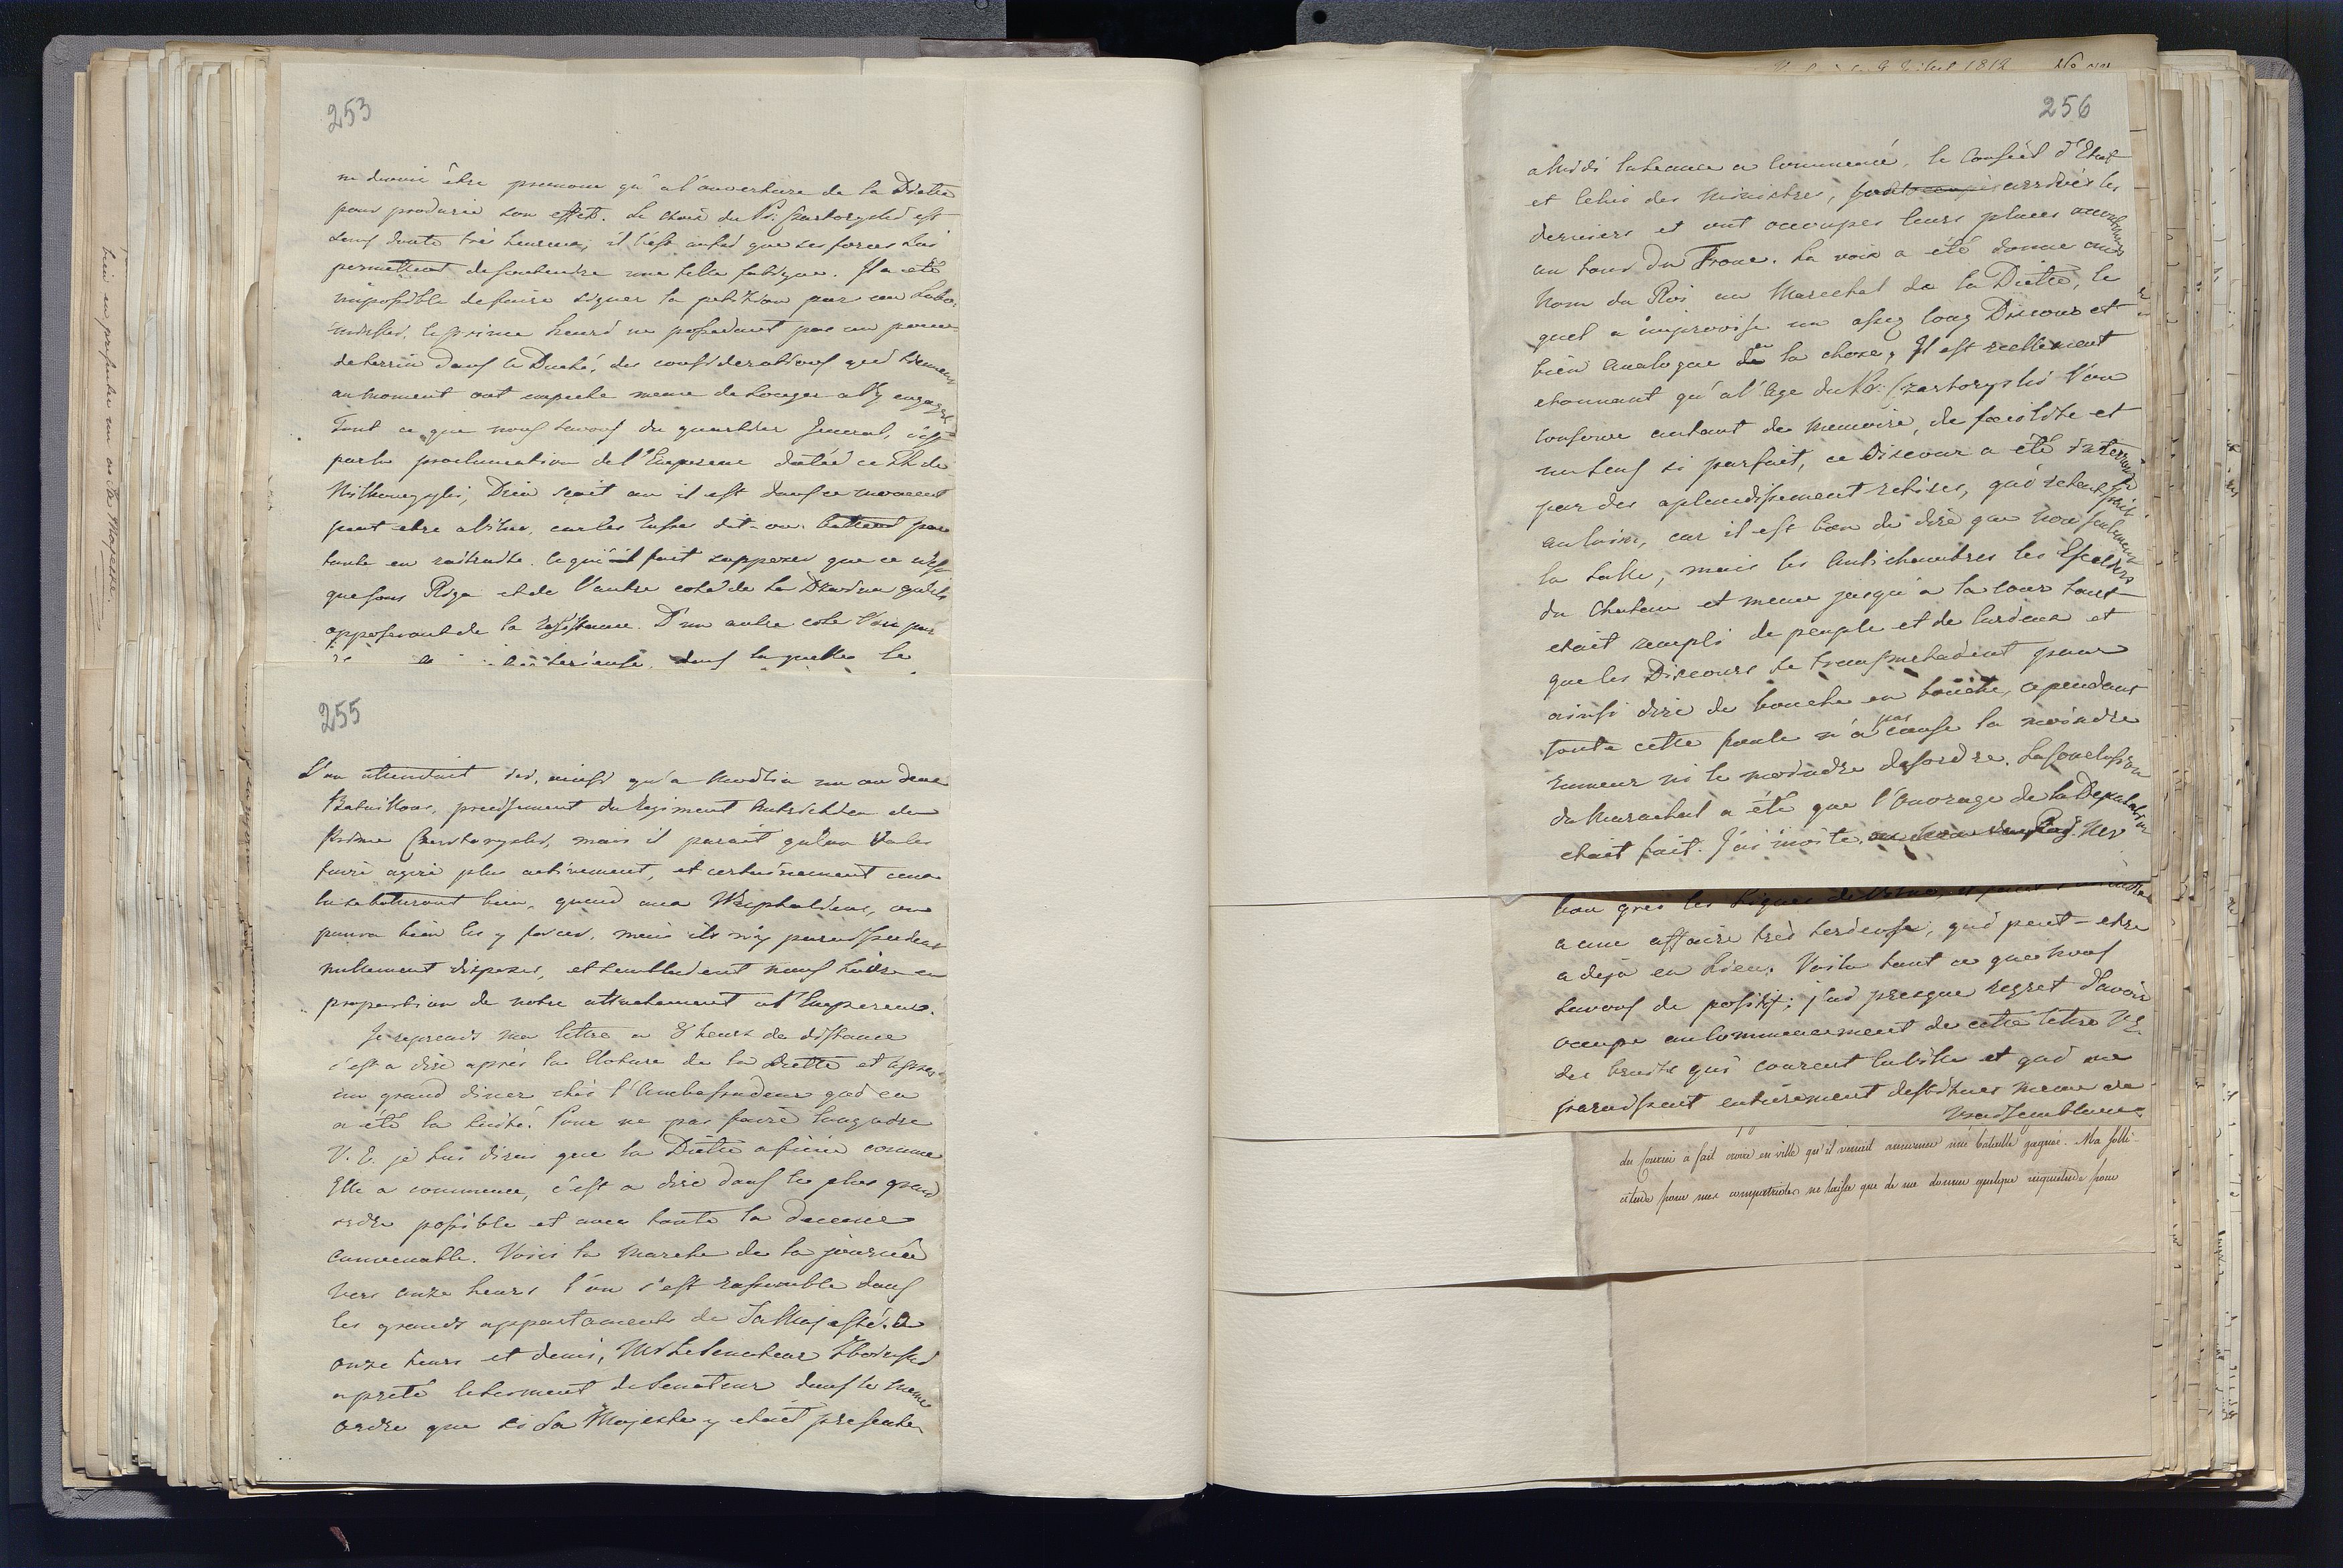 253
ne devrie être prononce qu'a l'ouverture de la Diette
pour produire son effet. Le choix du Pr: Czartoryski est
sans doute très heureux; il c'est que ses forces lui
permettent de soutendre une telle fatigue. Il a été
impossible de faire signer la petition par un Lubo-
mirski, le prince henri ne possedant pas un pouce
de terrin dans le Duché, des considerations qui tiennent
au moment ont empeche meme de songer a l'y engager
Tout ce que nous savons du quartier general, c'est
par la proclamation de l'Empereur datée ce
Wilkowyszki, Dieu sçait ou il est dans ce moment
peut-etre a Vilna, car les Russes dit-on battend par
toute en raitraite. ce qui fait supposer que ce n'est
que sous Riga et de l'autre coté de la Dzwina qu'ils
opposeront de la Resistance. D'un autre coté l'on par
dans laquelle le
255
L'on attendait ici, ainsi qu'a Modlin un ou deux
Bataillons, precisement du regiment Autrichien du
Prince Czartoryski, mais il parait qu'on va les
faire agire plus activement, et certainement ceux
la se batteront bien, quand aux Wesphaliens, on
poura bien les y forcer, mais ils n'y paraissaient
nullement disposes, et semblaient nous haire en
proportion de notre attachement a l'Empereur.
Je reprends ma lettre a 8 heures de distance
c'est a dire après la cloture de la Diette et après
un grand diner chés l'Ambassadeur qui en
a été la suite. Pour ne pas faire languire
V. E. je lui dirai que la Diette a finie comme
Elle a commencé, c'est a dire dans le plus grand
ordre possible et avec toute la decence
convenable. Voici la marche de la journée
Vers onze heures l'on s'est rassemble dans
les grands appartaments de Sa Majesté. a
onze heures et demi, Mr le Senateur
a preté le serment de Senateur dans le meme
ordre que si Sa Majeste y etait presente
256
a Midi la seance a commencé. le Conseil d'Etat
et celui des Ministres, arrivés les
derniers et ont occupes leurs places
au tour du Trone. La voix a été donne au
Nom du Roi au Marechal de la Diette, le
quel a improvise un assez long Discours et
bien analogue a la chose, Il est reellement
etonnant qu'a l'age du Pr: Czartoryski l'on
conserve autant de memoire, de facilite et
un sens si parfait, ce Discour a été interrompu
par des aplaudissement reteres, qui retentissait
au loin, car il est bon de dire que non seulement
la salle, mais les Antichambres les Escaliers
du Chateau et meme jusqu'a la cour tout
etait rempli de peuple et de curieux et
que les Discours se transmetaient pour
ainsi dire de bouche en bouche, cependant
toute cette foule n'a pas cause la moindre
rumeur ni le moindre desordre. La conclusion
du Marechal a été que l'Ouvrage de la Deputation
etait fait. J'ai
bon gres les Lignes de
a une affaire très serieuse, qui peut-etre
a dejà eu Lieu. Voila tout ce que nous
savons de positif; j'ai presque regret d'avoir
occupe au commencement de cette lettre V. E.
des bruits qui courent la ville et qui me
paraissent entierement destitues meme de
vraisemblance
du Courrier a fait croire en ville qu'il venait annoncer une bataille gagnée. Ma solli-
citude pour mes compatriotes ne laisse que de me donner quelque inquietude pour
bien en presenter un a Sa Majesté.
1812 No